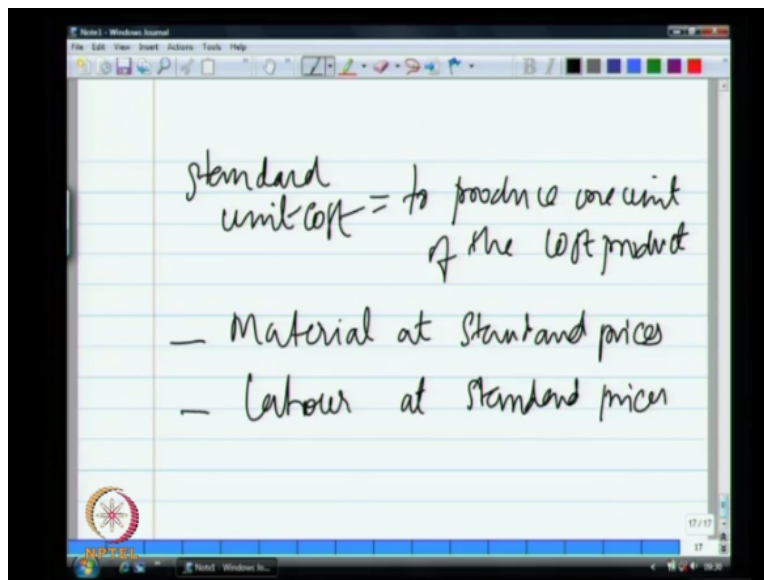 Note1 - Windows Journal
File Edit View Insert Actions Tools Help
B I
standard
unit cost = to produce one unit
of the cost product
— Material at standard prices
— Labour at standard prices
17/17
17
NPTEL
Note1 - Windows Jo...
09:30